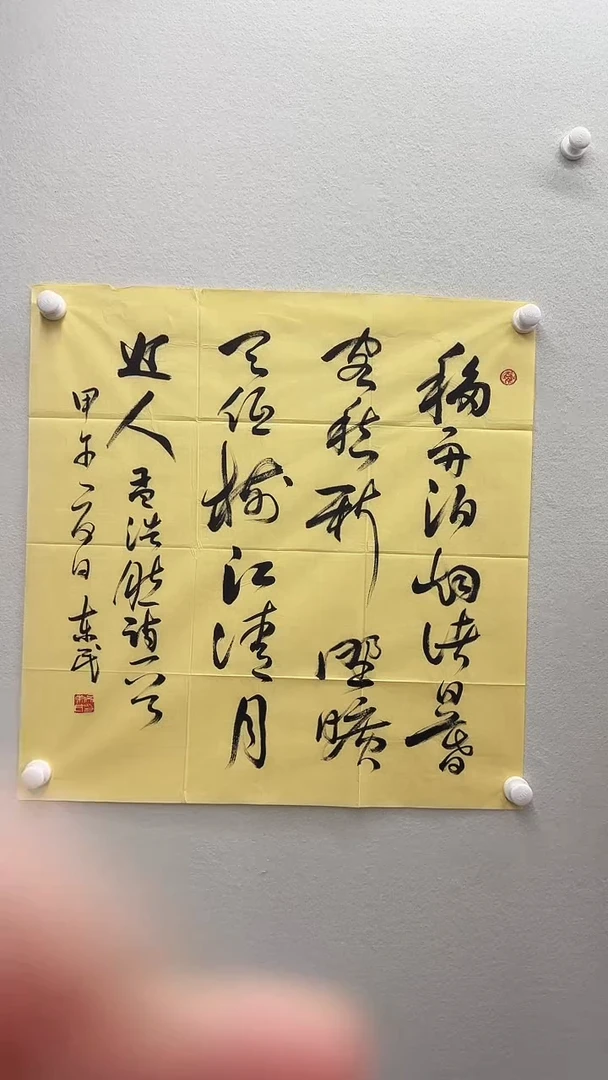 移舟泊烟渚日暮
客愁新野曠
天低樹江清月
近人孟浩然詩一首
甲午日东民